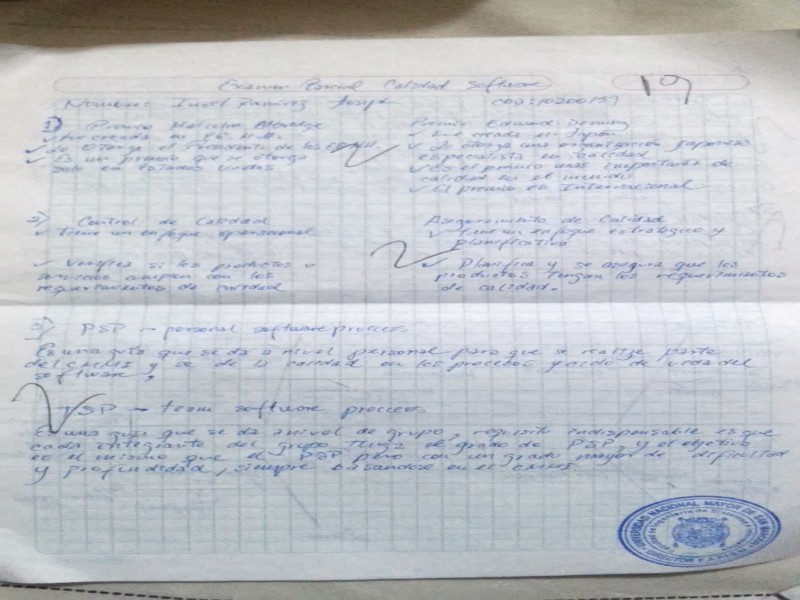 Examen Parcial Calidad Software
19
Nombre: Ramirez Joseph
COD: 10200159
1) Premio Malcolm
✓ Fue creada en EE.UU.
✓ Lo otorga el Presidente de los EE.UU.
✓ Es un premio que se otorga
solo en Estados Unidos
Premio Edward Deming
✓ Fue creada en Japón
✓ Lo otorga una organización japonesa
especialista en calidad
✓ Es el premio más importante de
calidad en el mundo
✓ El premio es Internacional
2) Control de Calidad
✓ Tiene un enfoque operacional
✓ Verifica si los productos o
servicios cumplen con los
requerimientos de calidad
Aseguramiento de Calidad
✓ Tiene un enfoque estratégico y
planificativo
✓ Planifica y se asegura que los
productos tengan los requerimientos
de calidad.
3) PSP → personal software proccess
Es una guia que se da a nivel personal para que se realize parte
del CMMI y se de la calidad en los procesos y ciclo de vida del
software.
TSP → team software proccess
Es una guia que se da a nivel de grupo, requisito indispensable es que
cada integrante del grupo tenga el grado de PSP, y el objetivo
es el mismo que el PSP pero con un grado mayor de dificultad
y profundidad, siempre basandose en el CMMI
UNIVERSIDAD NACIONAL MAYOR DE SAN
DIRECTOR